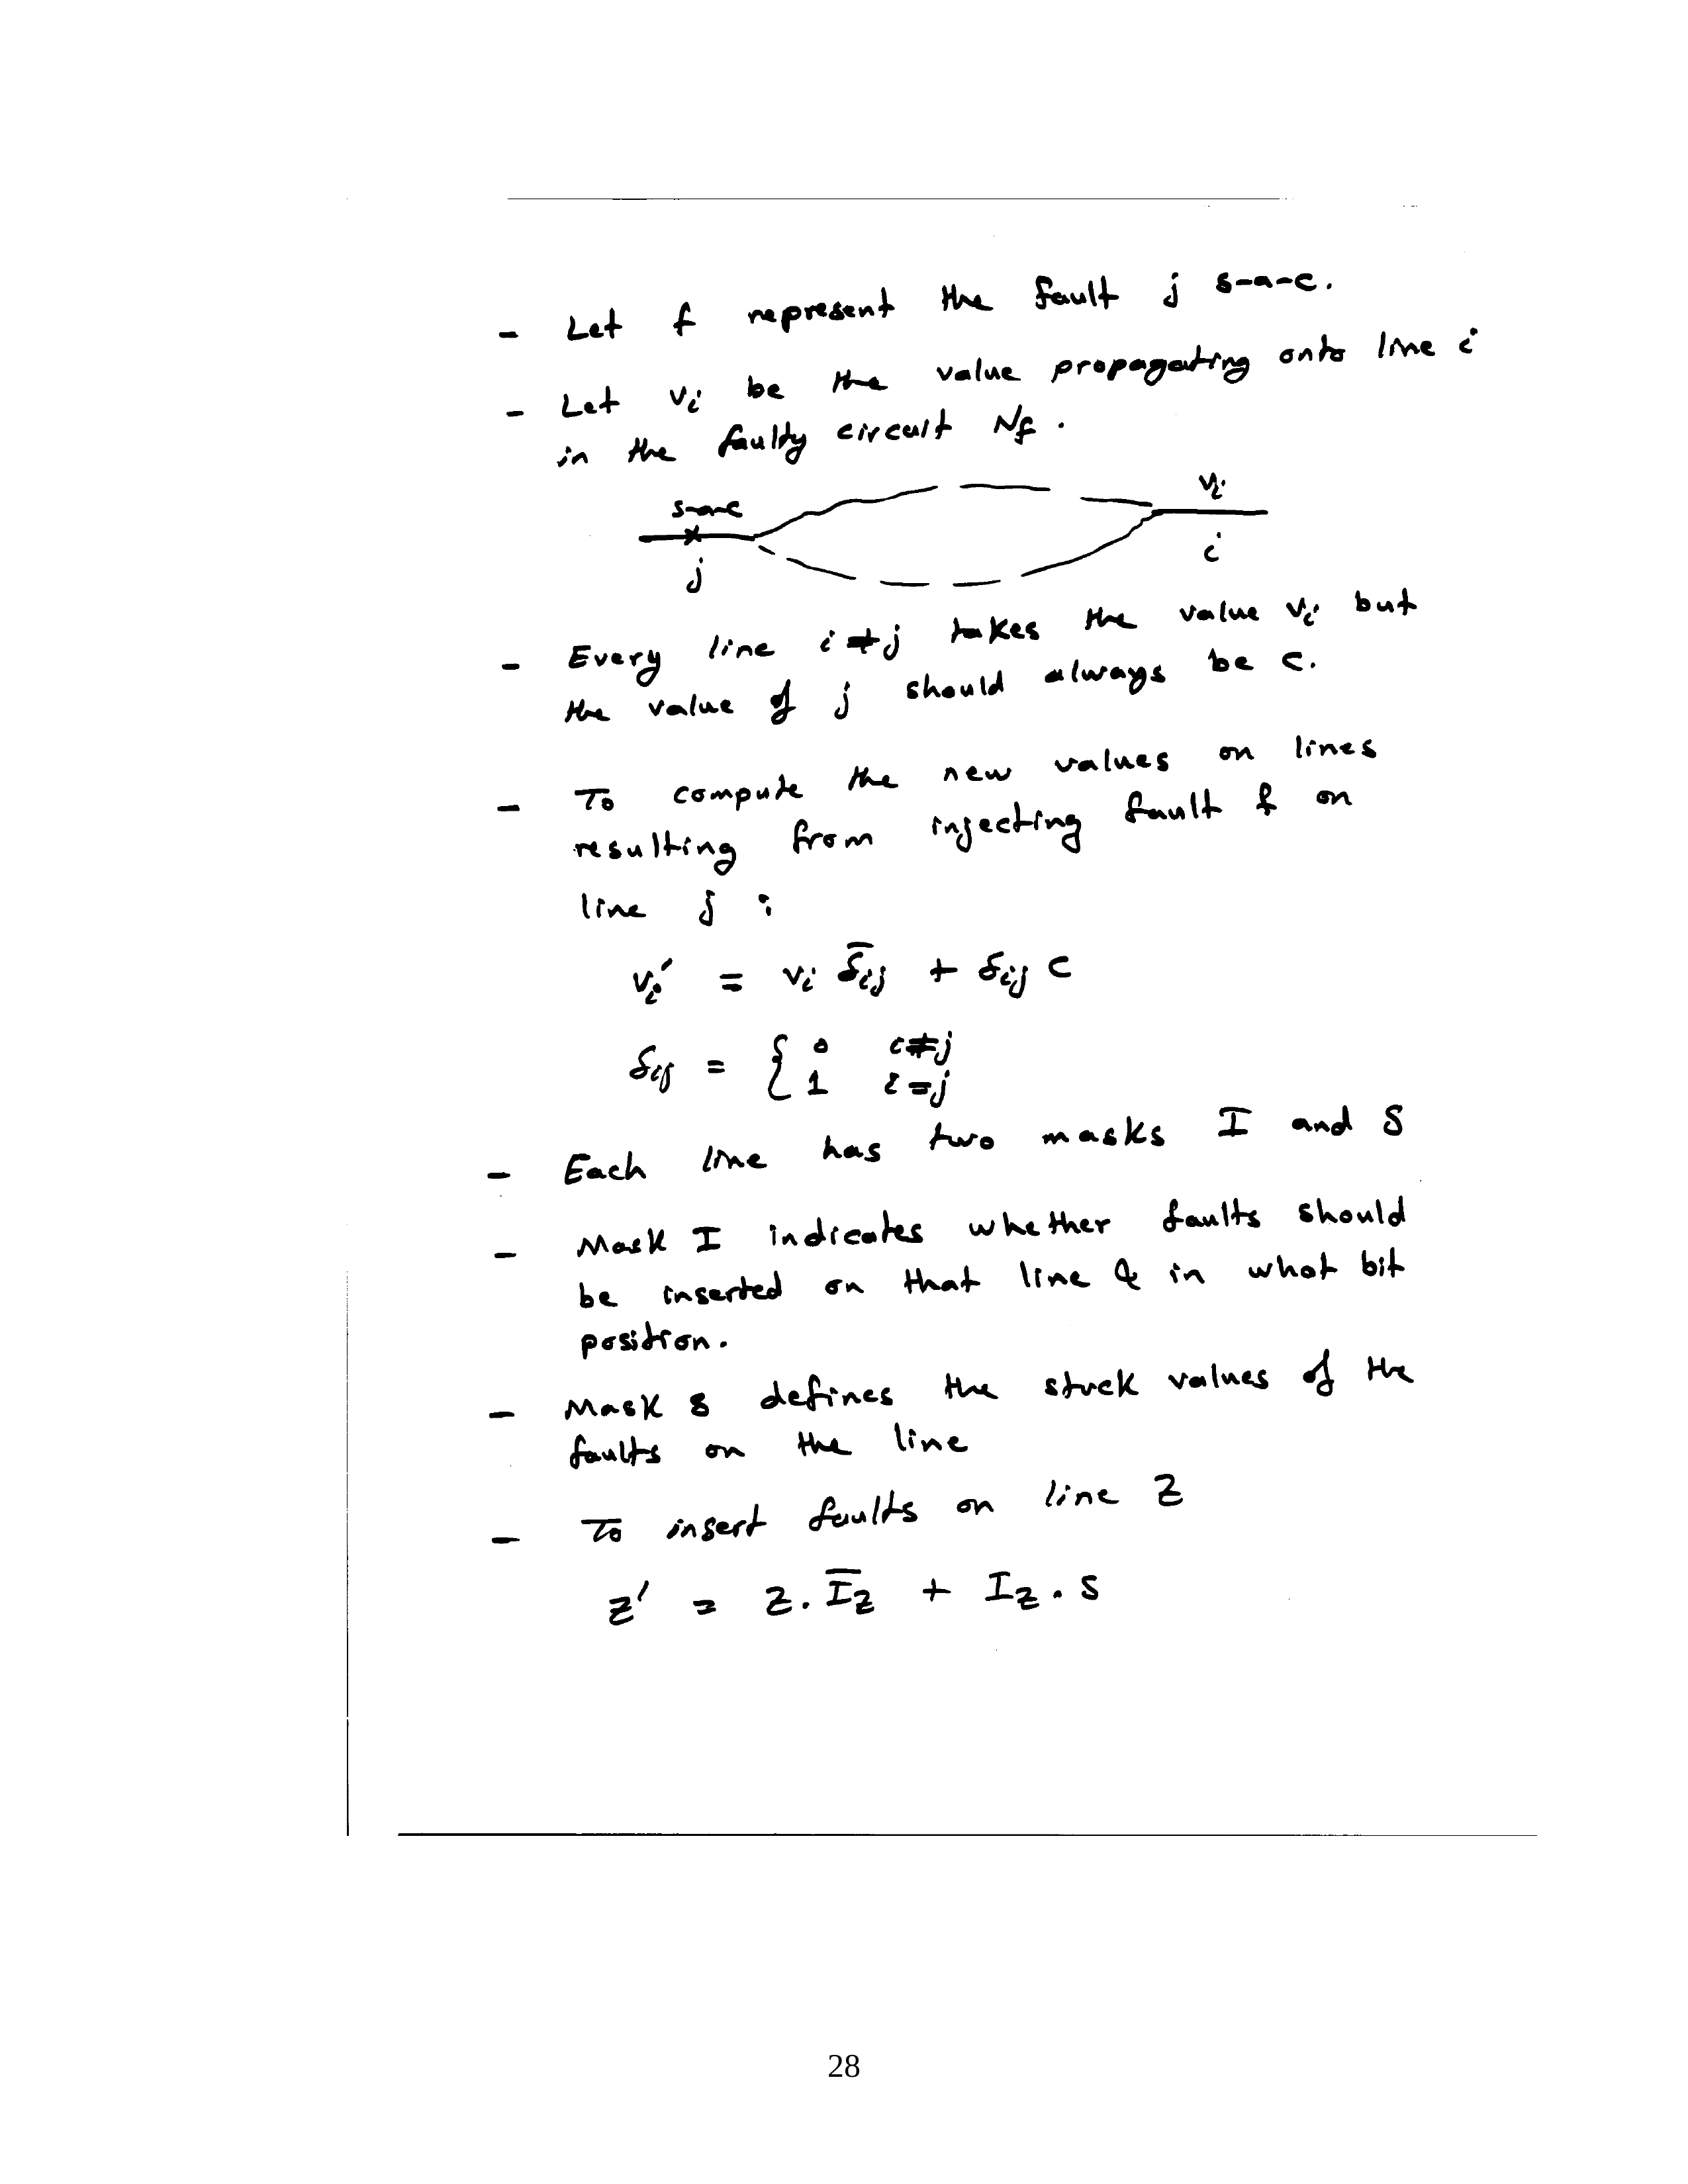 - Let f represent the fault j s-a-c.
- Let vᵢ be the value propagating onto line i
in the faulty circuit N_f.
s-a-c
vᵢ
j
i
- Every line i ≠ j takes the value vᵢ but
the value of j should always be c.
- To compute the new values on lines
resulting from injecting fault f on
line j :
vᵢ' = vᵢ δ̄ᵢⱼ + δᵢⱼ c
δᵢⱼ = { 0 i≠j
1 i=j
- Each line has two masks I and S
- Mask I indicates whether faults should
be inserted on that line & in what bit
position.
- Mask S defines the stuck values of the
faults on the line
- To insert faults on line Z
Z' = Z . Ī_Z + I_Z . S
28